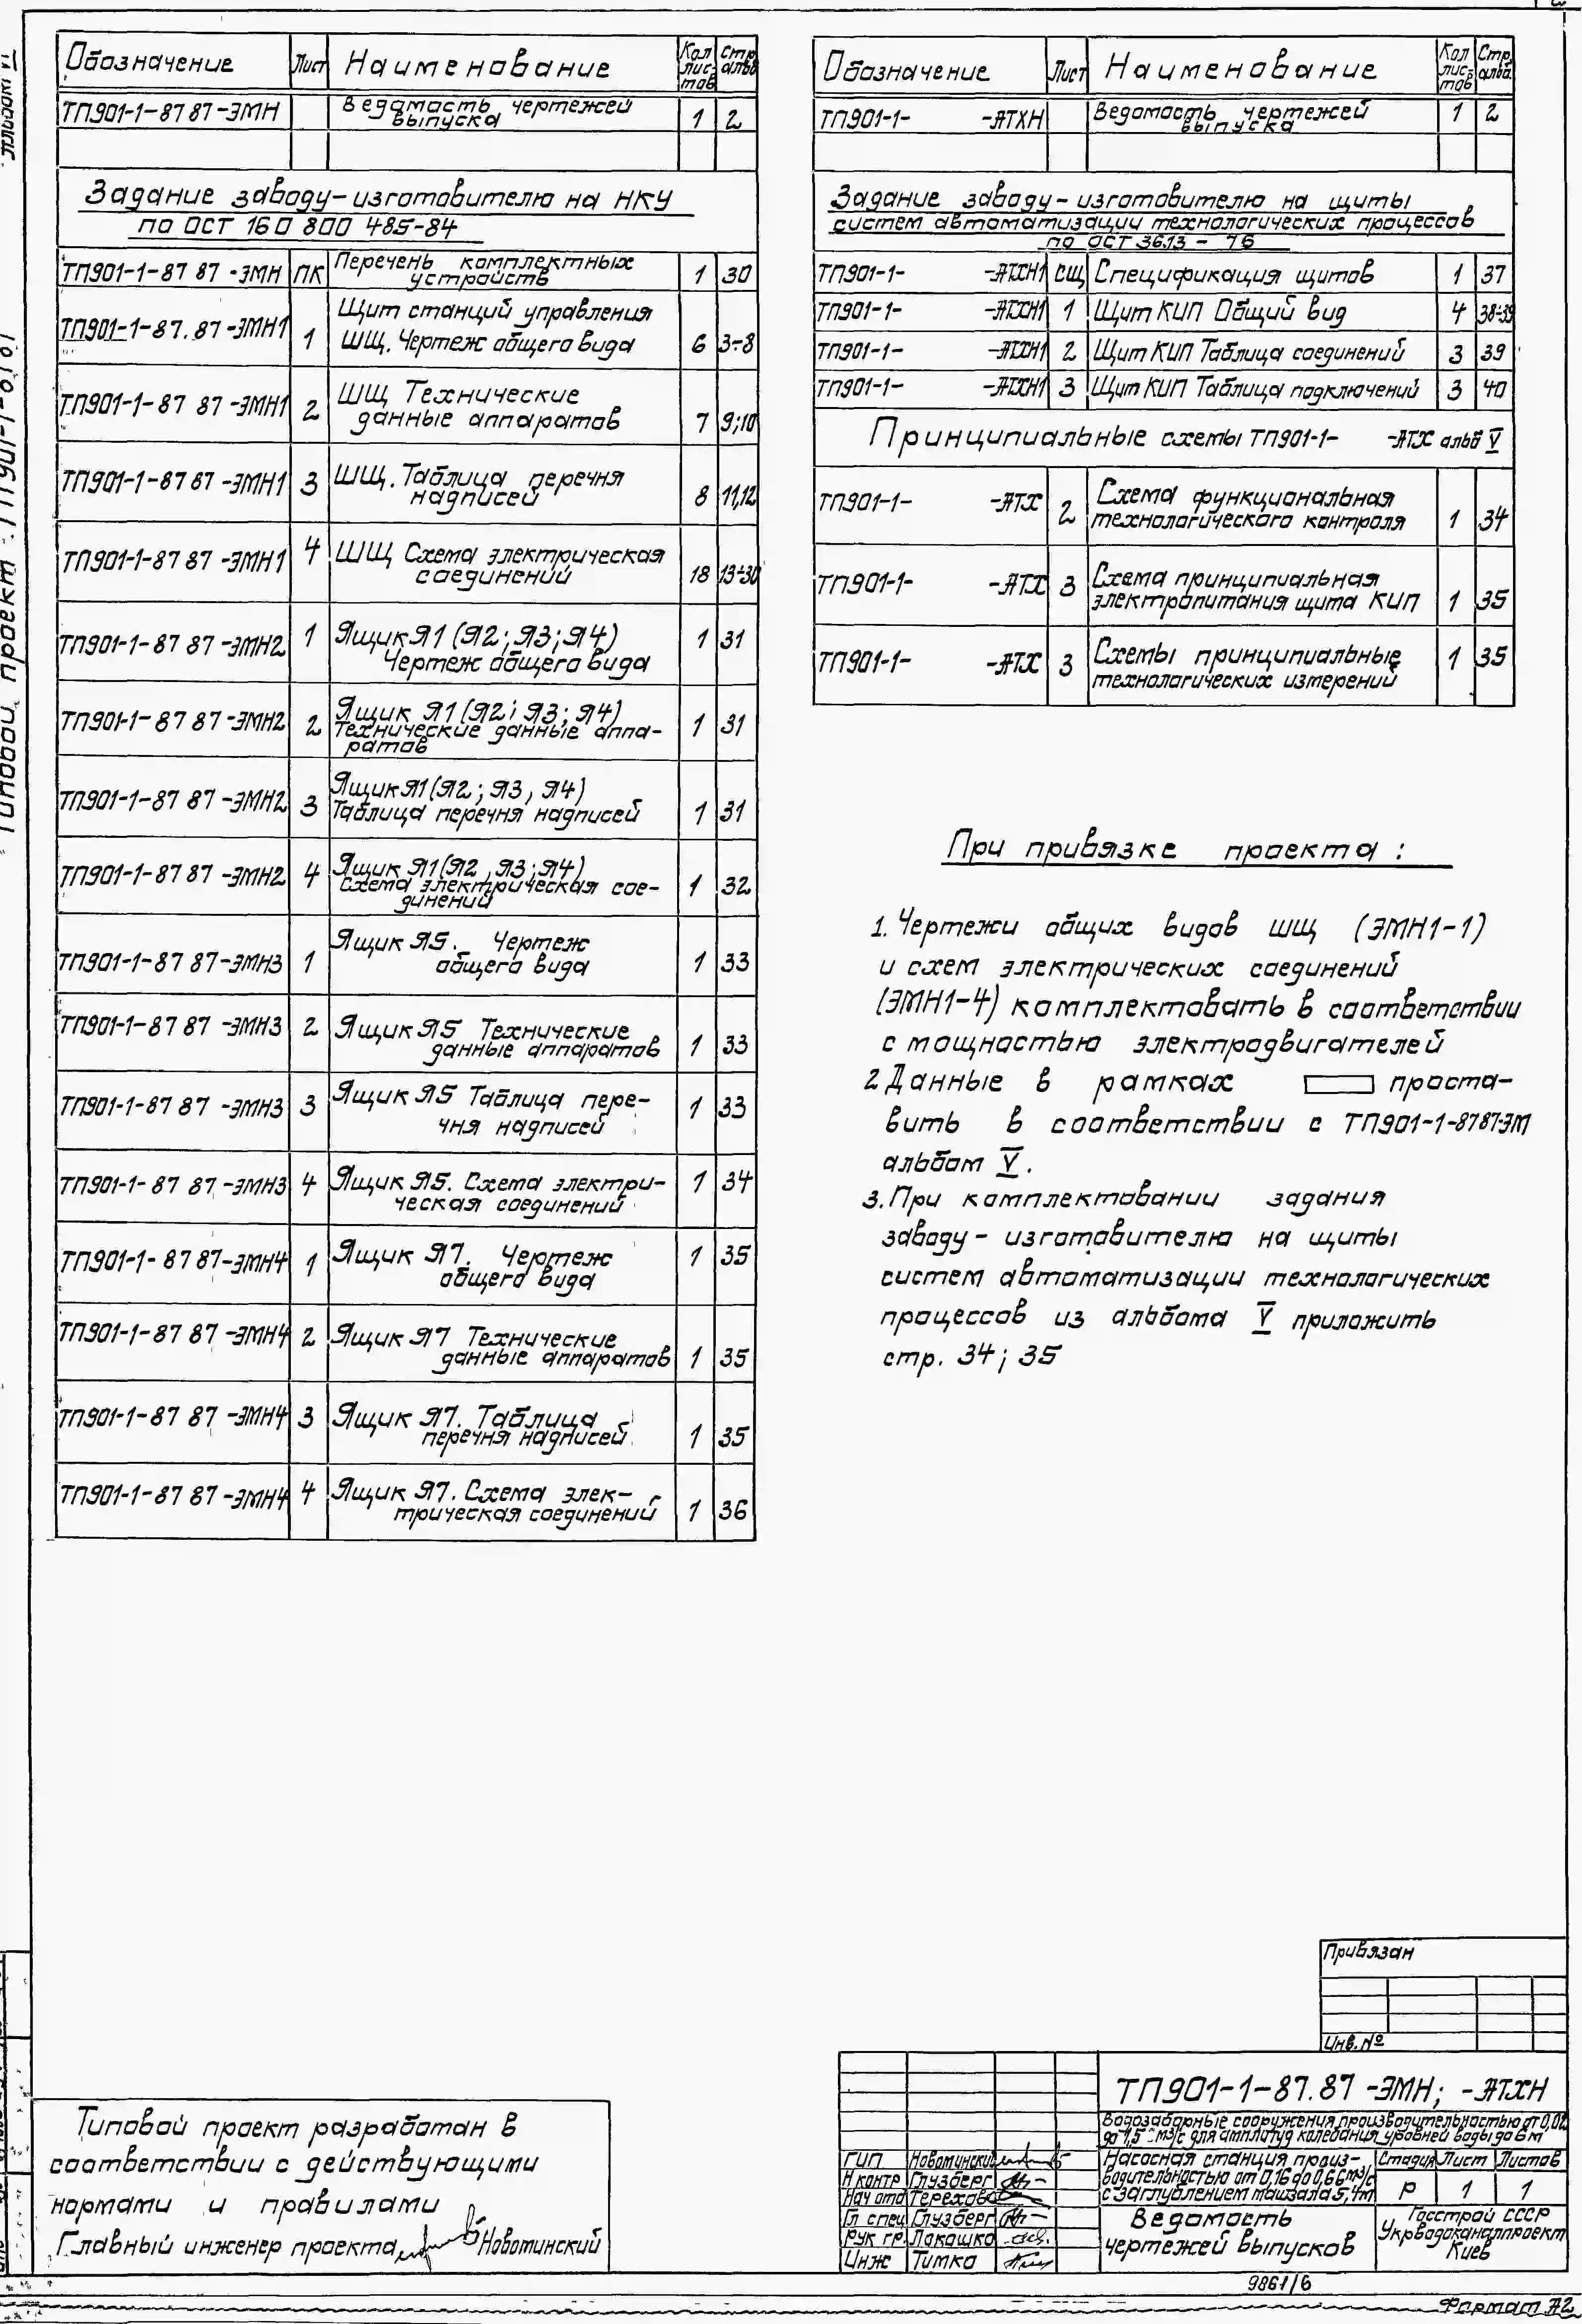 Обозначение Лист Наименование Кол листов Стр. альб
ТП901-1-87 87 -ЭМН Ведомость чертежей 1 2
выпуска
Задание заводу-изготовителю на НКУ
по ОСТ 16 0 800 485-84
ТП901-1-87 87 -ЭМН ПК Перечень комплектных 1 30
устройств
Щит станций управления
ТП901-1-87. 87 -ЭМН1 1 ШЩ. Чертеж общего вида 6 3÷8
ТП901-1-87 87 -ЭМН1 2 ШЩ Технические
данные аппаратов 7 9;10
ТП901-1-87 87 -ЭМН1 3 ШЩ. Таблица перечня
надписей 8 11,12
ТП901-1-87 87 -ЭМН1 4 ШЩ Схема электрическая
соединений 18 13÷30
ТП901-1-87 87 -ЭМН2 1 Ящик Я1 (Я2; Я3; Я4) 1 31
Чертеж общего вида
ТП901-1-87 87 -ЭМН2 2 Ящик Я1 (Я2; Я3; Я4) 1 31
Технические данные аппа-
ратов
ТП901-1-87 87 -ЭМН2 3 Ящик Я1 (Я2; Я3, Я4)
Таблица перечня надписей 1 31
ТП901-1-87 87 -ЭМН2 4 Ящик Я1 (Я2, Я3; Я4)
Схема электрическая сое- 1 32
динений
ТП901-1-87 87 -ЭМН3 1 Ящик Я5. Чертеж
общего вида 1 33
ТП901-1-87 87 -ЭМН3 2 Ящик Я5 Технические
данные аппаратов 1 33
ТП901-1-87 87 -ЭМН3 3 Ящик Я5 Таблица пере- 1 33
чня надписей
ТП901-1-87 87 -ЭМН3 4 Ящик Я5. Схема электри- 1 34
ческая соединений
ТП901-1-87 87 -ЭМН4 1 Ящик Я7. Чертеж 1 35
общего вида
ТП901-1-87 87 -ЭМН4 2 Ящик Я7 Технические
данные аппаратов 1 35
ТП901-1-87 87 -ЭМН4 3 Ящик Я7. Таблица
перечня надписей 1 35
ТП901-1-87 87 -ЭМН4 4 Ящик Я7. Схема элек-
трическая соединений 1 36
Обозначение Лист Наименование Кол листов Стр. альб.
ТП901-1- -АТХН Ведомость чертежей 1 2
выпуска
Задание заводу-изготовителю на щиты
систем автоматизации технологических процессов
по ОСТ 36.13 - 76
ТП901-1- -АТХН1 СЩ Спецификация щитов 1 37
ТП901-1- -АТХН1 1 Щит КИП Общий вид 4 38÷39
ТП901-1- -АТХН1 2 Щит КИП Таблица соединений 3 39
ТП901-1- -АТХН1 3 Щит КИП Таблица подключений 3 40
Принципиальные схемы ТП901-1- -АТХ альб V
ТП901-1- -АТХ 2 Схема функциональная
технологического контроля 1 34
ТП901-1- -АТХ 3 Схема принципиальная
электропитания щита КИП 1 35
ТП901-1- -АТХ 3 Схемы принципиальные 1 35
технологических измерений
При привязке проекта :
1. Чертежи общих видов ШЩ (ЭМН1-1)
и схем электрических соединений
(ЭМН1-4) комплектовать в соответствии
с мощностью электродвигателей
2 Данные в рамках проста-
вить в соответствии с ТП901-1-87 87-ЭМ
альбом V.
3. При комплектовании задания
заводу - изготовителю на щиты
систем автоматизации технологических
процессов из альбома V приложить
стр. 34; 35
Типовой проект 901-1-
Альбом VI
Привязан
Инв. №
Типовой проект разработан в
соответствии с действующими
нормами и правилами
Главный инженер проекта Новотинский
ТП901-1-87.87 -ЭМН; -АТХН
Водозаборные сооружения производительностью от 0,02
до 1,5 м3/с для амплитуд колебания уровней воды до 6 м
ГИП Новотинский
Н контр Глузберг
Нач отд Терехова
Гл спец Глузберг
Рук гр. Локошко
Инж Тимко
Насосная станция произ-
водительностью от 0,16 до 0,66 м3/с
с заглублением машзала 5,4м
Стадия Лист Листов
Р 1 1
Ведомость
чертежей выпусков
Госстрой СССР
Укрводоканалпроект
Киев
9861/6
Формат А2